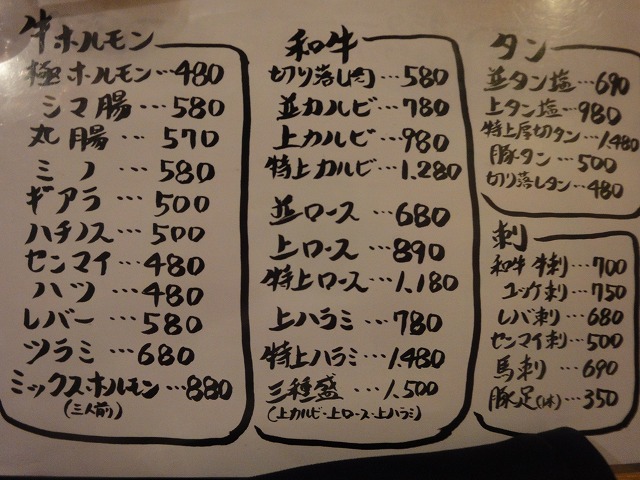 牛ホルモン
極ホルモン…480
シマ腸…580
丸腸…570
ミノ…580
ギアラ…500
ハチノス…500
センマイ…480
ハツ…480
レバー…580
ツラミ…680
ミックスホルモン…880
(三人前)
和牛
切り落し肉…580
並カルビ…780
上カルビ…980
特上カルビ…1,280
並ロース…680
上ロース…890
特上ロース…1,180
上ハラミ…780
特上ハラミ…1,480
三種盛…1,500
(上カルビ・上ロース・上ハラミ)
タン
並タン塩…690
上タン塩…980
特上厚切タン…1,480
豚タン…500
切り落しタン…480
刺
和牛 牛刺…700
ユッケ刺…750
レバ刺…680
センマイ刺…500
馬刺…690
豚足(1本)…350